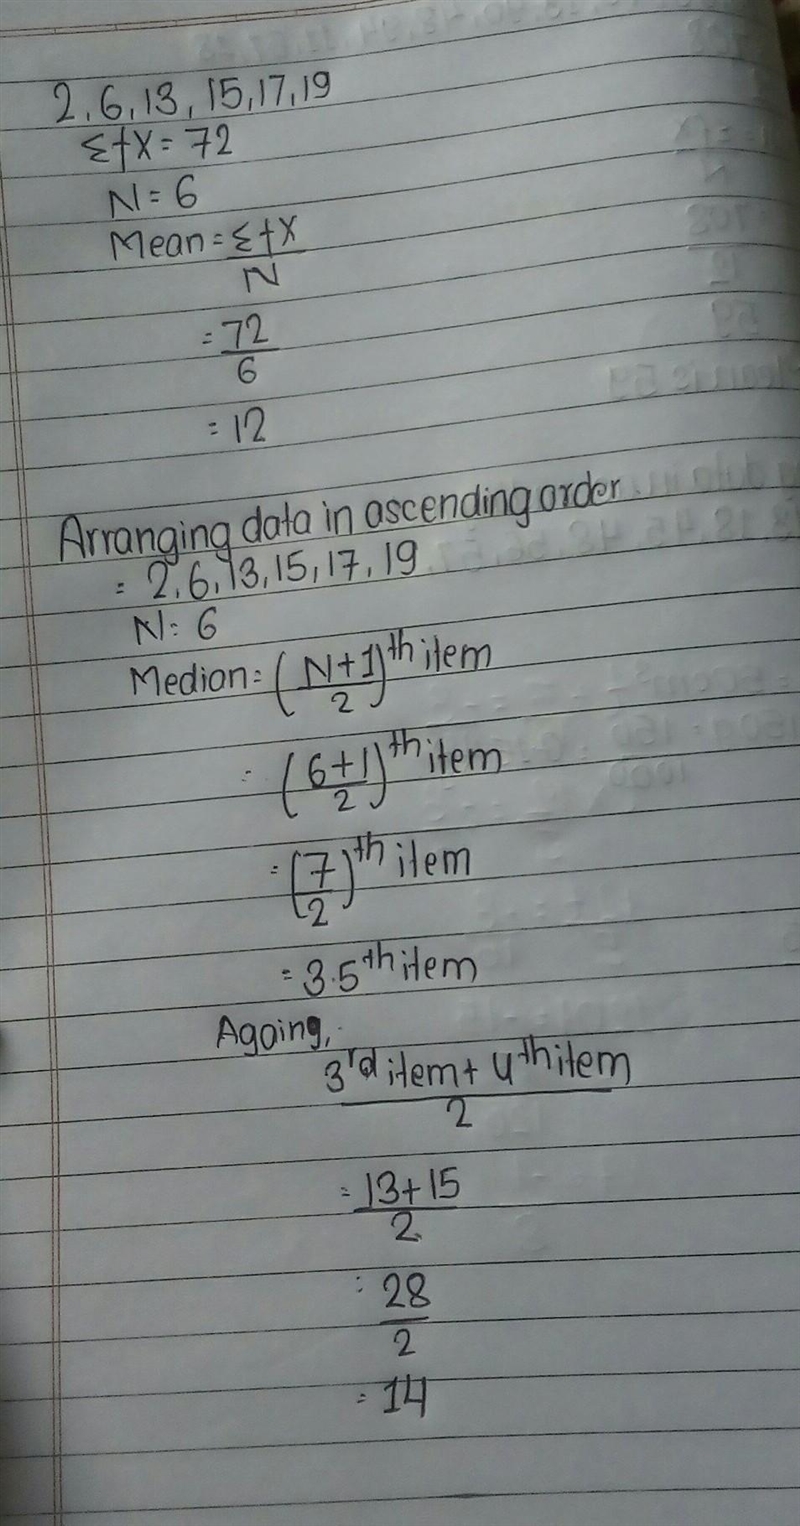 2, 6, 13, 15, 17, 19
ΣfX = 72
N = 6
Mean = ΣfX
N
= 72
6
= 12
Arranging data in ascending order
= 2, 6, 13, 15, 17, 19
N = 6
Median = (N+1)th item
2
= (6+1)th item
2
= (7)th item
2
= 3.5th item
Againg,
3rd item + 4th item
2
= 13+15
2
= 28
2
= 14